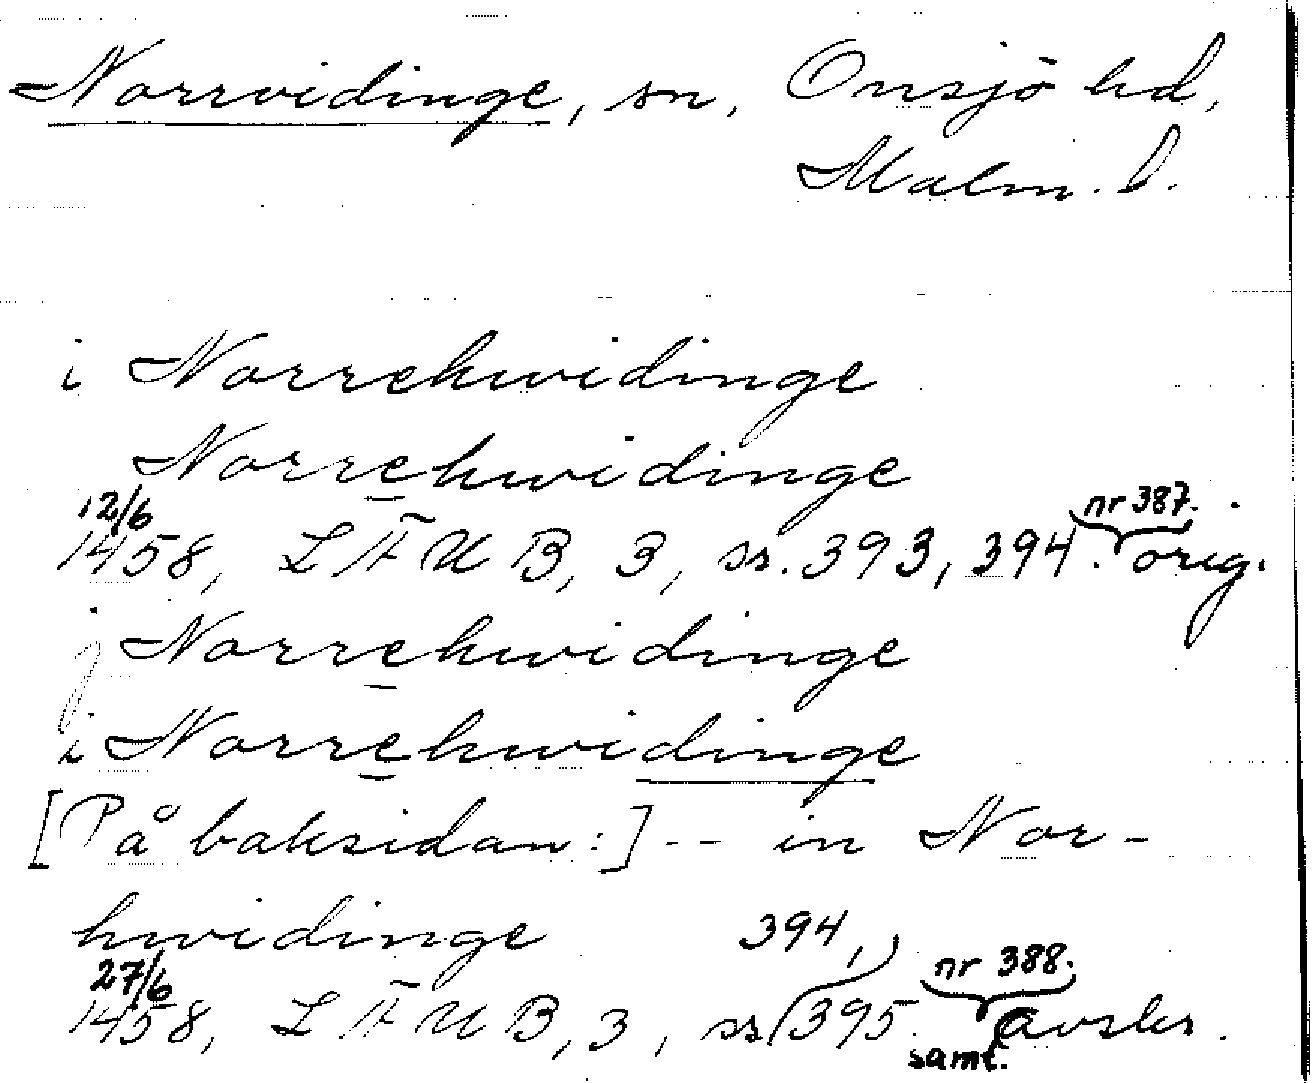 Norrvidinge, sn, Onsjö hd,
Malm. l.
i Norrehwidinge
Norrehwidinge
12/6 nr 387.
1458, LÄUB, 3, ss. 393, 394. orig.
j Norrehwidinge
i Norrehwidinge
[På baksidan:] -- in Nor-
hwidinge 394,
27/6 nr 388.
1458, LÄUB, 3, ss 395. avskr.
samt.